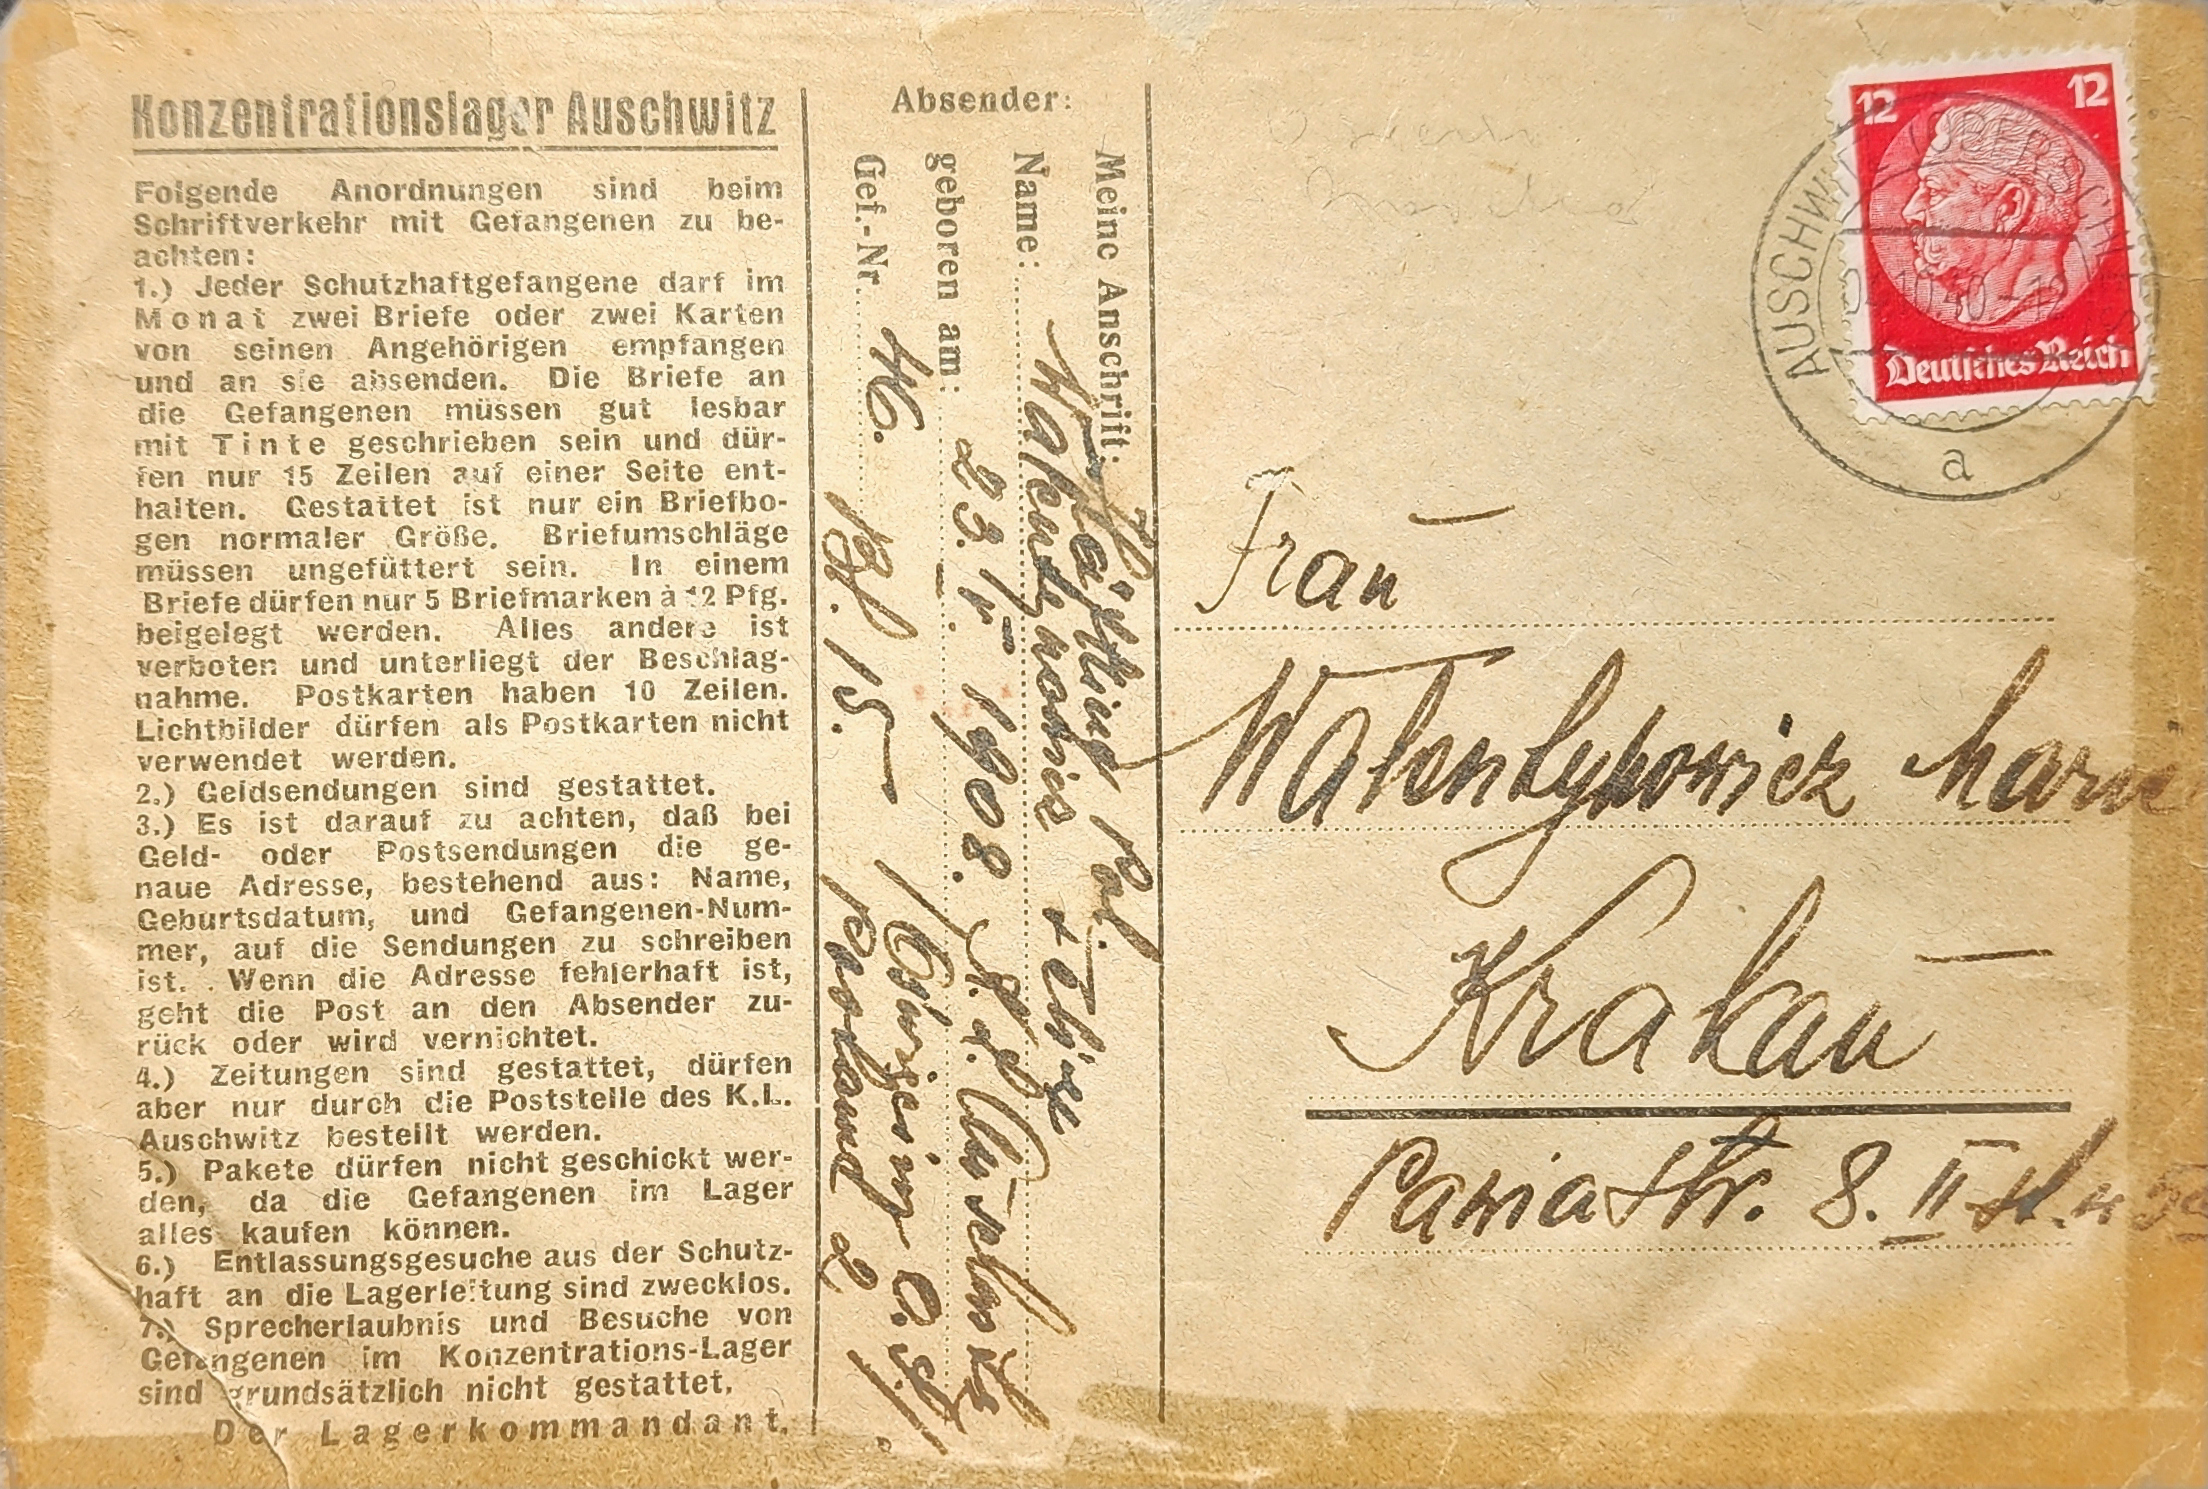 Konzentrationslager Auschwitz
Folgende Anordnungen sind beim
Schriftverkehr mit Gefangenen zu be-
achten:
1.) Jeder Schutzhaftgefangene darf im
Monat zwei Briefe oder zwei Karten
von seinen Angehörigen empfangen
und an sie absenden. Die Briefe an
die Gefangenen müssen gut lesbar
mit Tinte geschrieben sein und dür-
fen nur 15 Zeilen auf einer Seite ent-
halten. Gestattet ist nur ein Briefbo-
gen normaler Größe. Briefumschläge
müssen ungefüttert sein. In einem
Briefe dürfen nur 5 Briefmarken à 12 Pfg.
beigelegt werden. Alles andere ist
verboten und unterliegt der Beschlag-
nahme. Postkarten haben 10 Zeilen.
Lichtbilder dürfen als Postkarten nicht
verwendet werden.
2.) Geldsendungen sind gestattet.
3.) Es ist darauf zu achten, daß bei
Geld- oder Postsendungen die ge-
naue Adresse, bestehend aus: Name,
Geburtsdatum, und Gefangenen-Num-
mer, auf die Sendungen zu schreiben
ist. Wenn die Adresse fehlerhaft ist,
geht die Post an den Absender zu-
rück oder wird vernichtet.
4.) Zeitungen sind gestattet, dürfen
aber nur durch die Poststelle des K.L.
Auschwitz bestellt werden.
5.) Pakete dürfen nicht geschickt wer-
den, da die Gefangenen im Lager
alles kaufen können.
6.) Entlassungsgesuche aus der Schutz-
haft an die Lagerleitung sind zwecklos.
7.) Sprecherlaubnis und Besuche von
Gefangenen im Konzentrations-Lager
sind grundsätzlich nicht gestattet.
Der Lagerkommandant.
Absender:
Meine Anschrift: Häftling Pol.
Name:
geboren am: 23. IV. 1908.
Auschwitz
Gef.-Nr. 46. Bl. 15.
12 12
Deutsches Reich
AUSCHWITZ (OBERSCHLES)
a
Frau
Walentynowicz
Krakau
Pawia str. 8. II